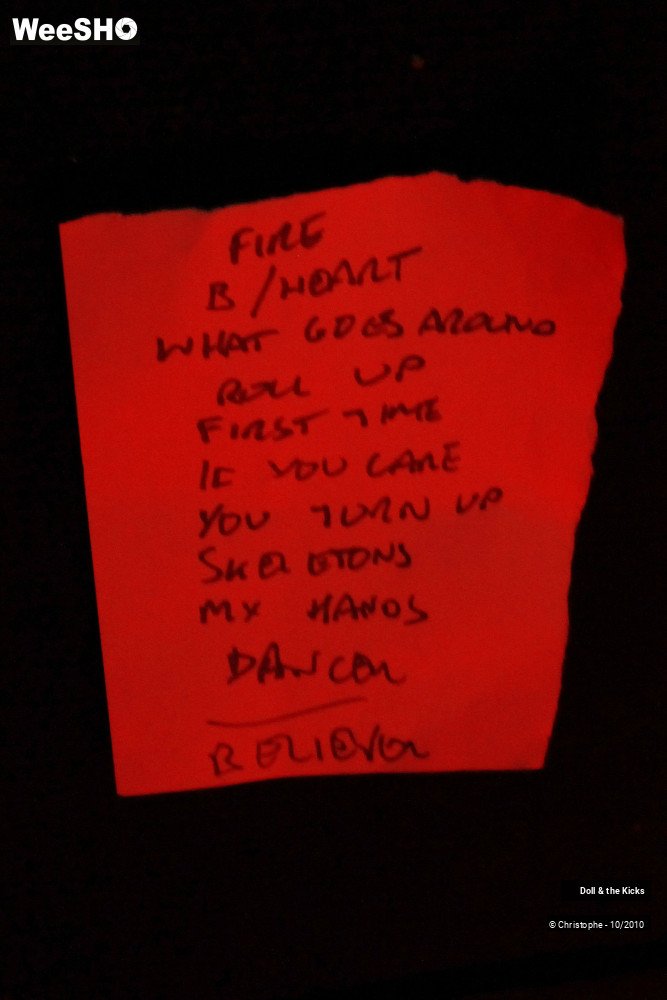 WeeSHO
FIRE
B/HEART
WHAT GOES AROUND
ROLL UP
FIRST TIME
IF YOU CARE
YOU TURN UP
SKELETONS
MY HANDS
DANCER
BELIEVER
Doll & the Kicks
© Christophe - 10/2010